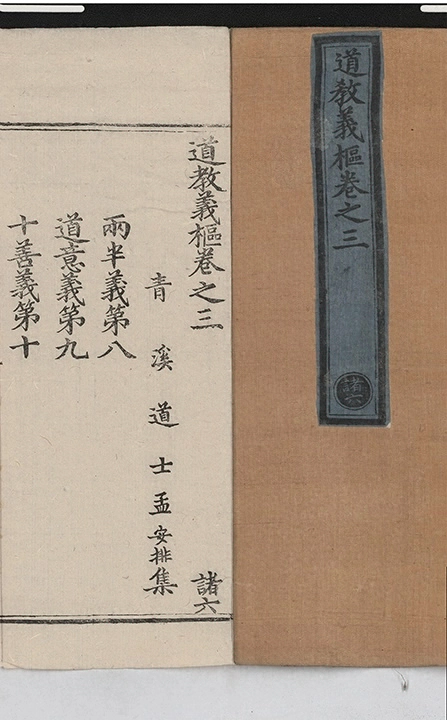 道教義樞卷之三
諸六
道教義樞卷之三
諸六
青溪道士孟安排集
兩半義第八
道意義第九
十善義第十